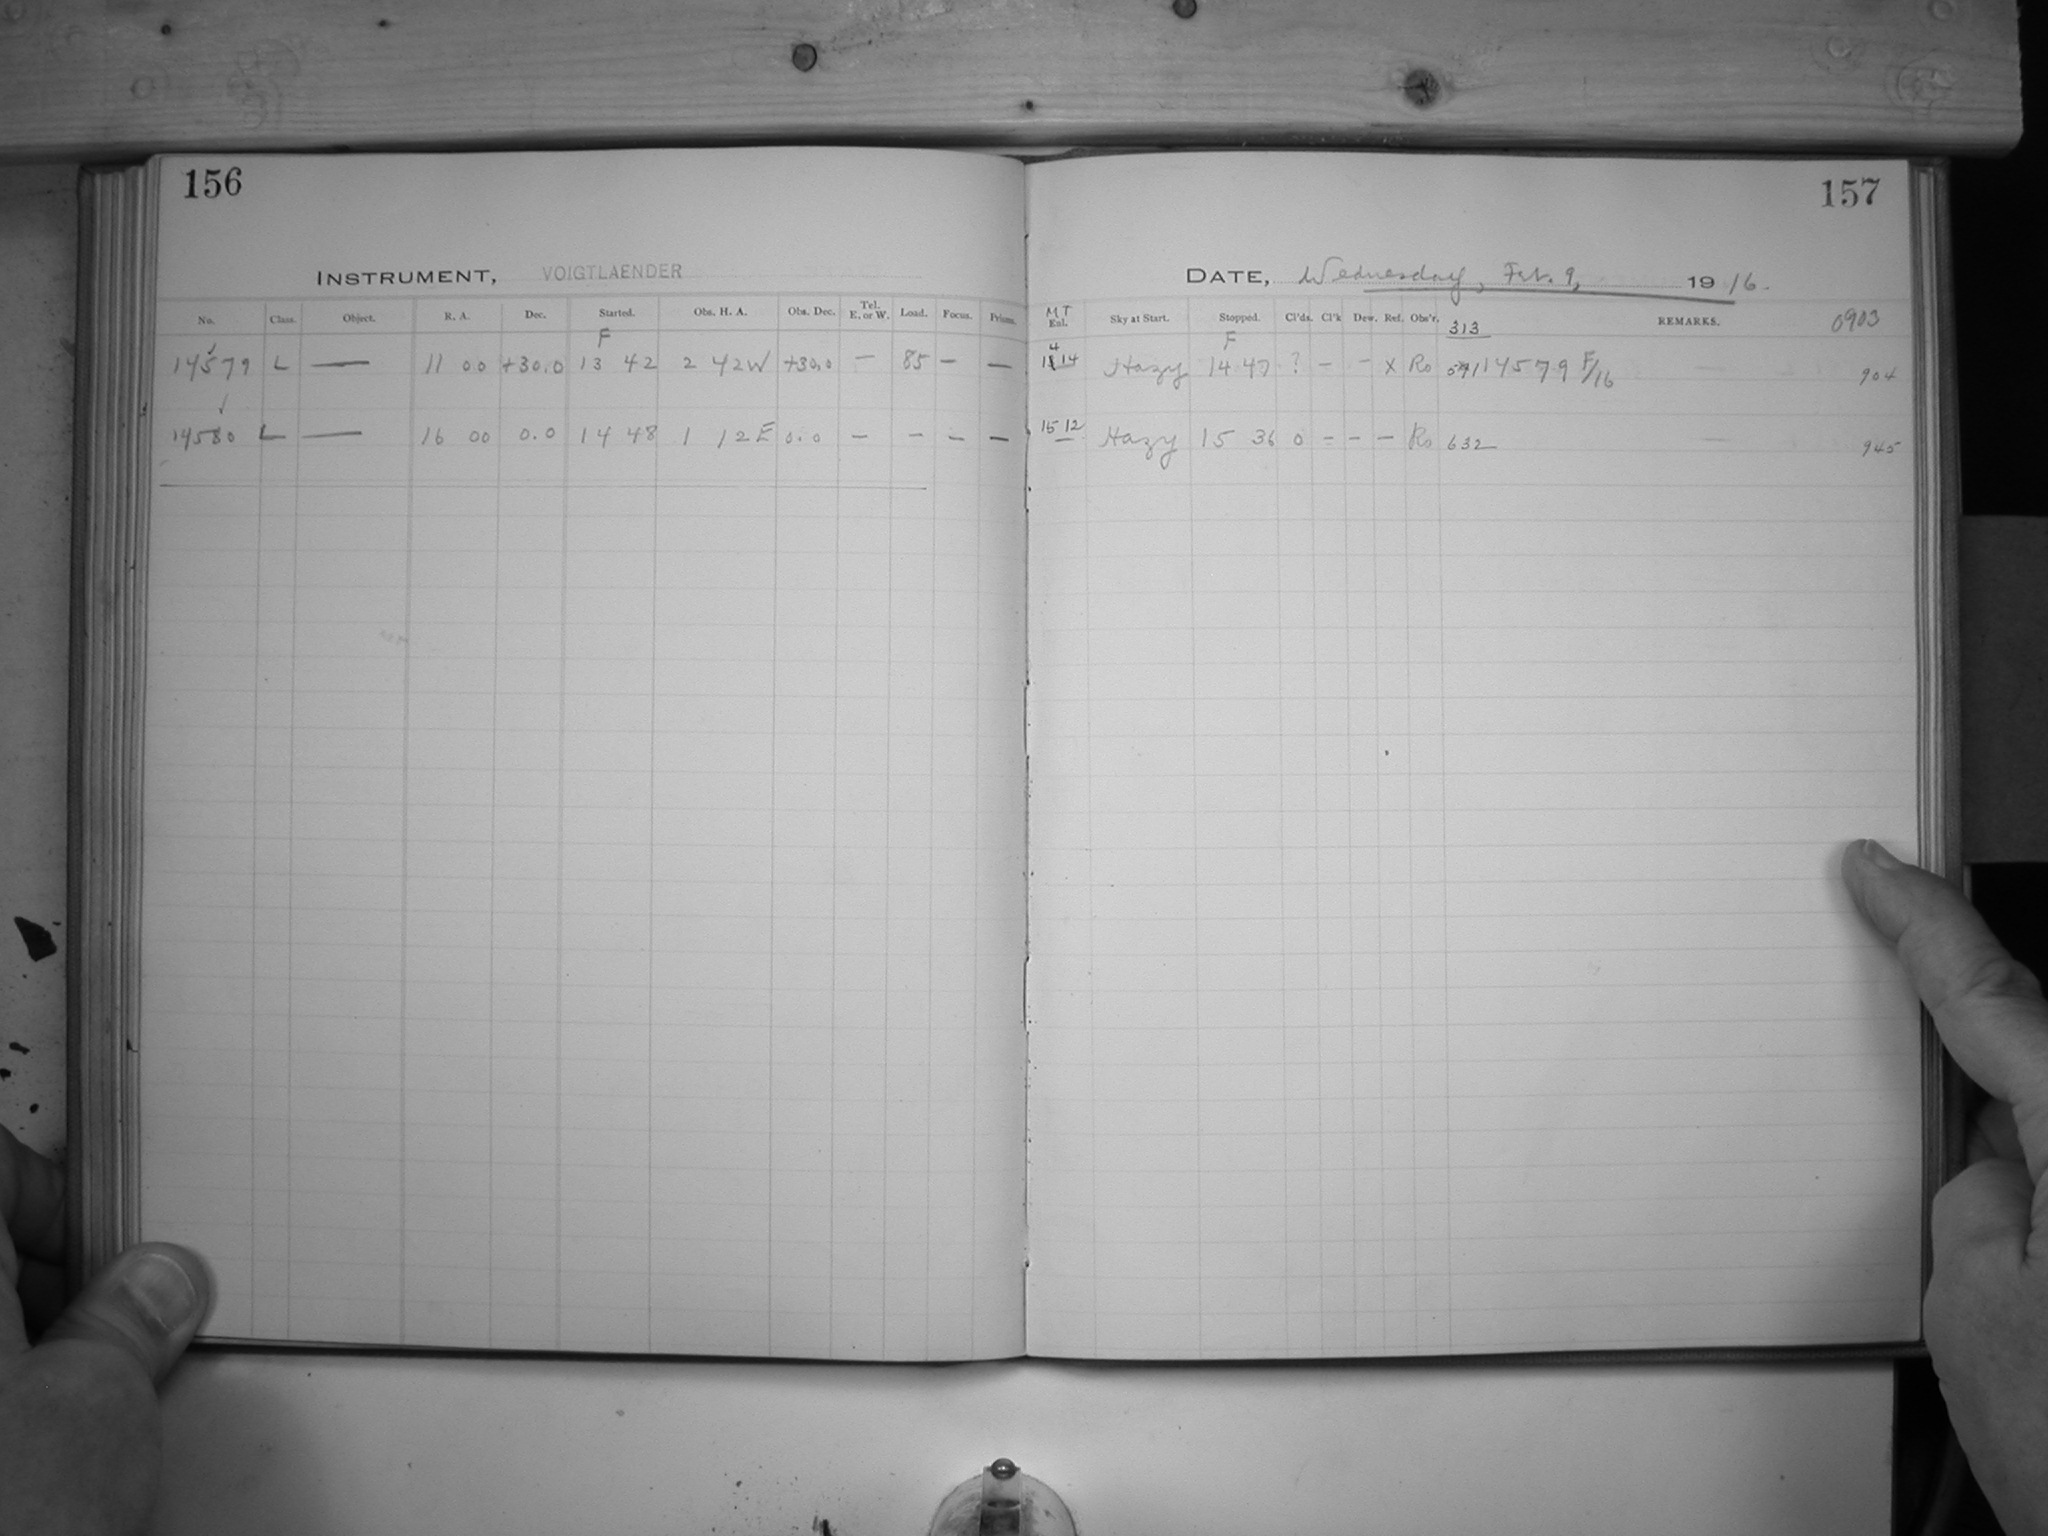 156
157
INSTRUMENT, VOIGTLAENDER
DATE, Wednesday, Feb. 9, 1916.
No. Class. Object. R. A. Dec. Started. Obs. H. A. Obs. Dec. Tel. E. or W. Load. Focus. Prisms.
M T Enl. Sky at Start. Stopped. Cl'ds. Cl'k Dew. Ref. Obs'r. 313 REMARKS. 0903
F
4 F
14579 L — 11 00 +30.0 13 42 2 42W +30.0 — 85 — —
14 Hazy 14 47 ? – – x Ro 14579 F/16 904
14580 L — 16 00 0.0 14 48 1 12E 0.0 — – — —
15 12 Hazy 15 36 0 = – – Ro 632 945